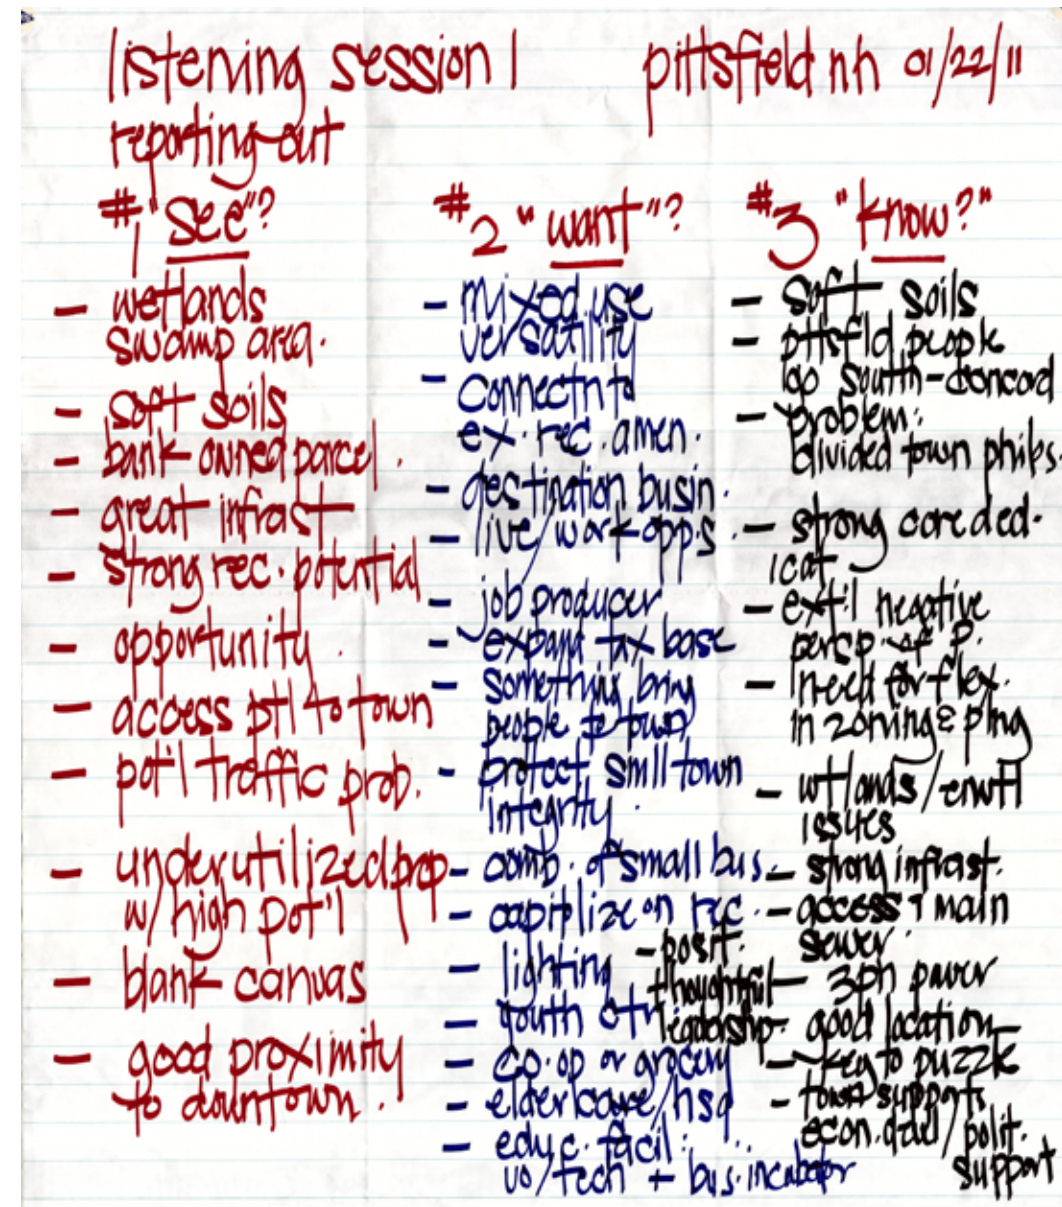 listening session 1 pittsfield nh 01/22/11
reporting out
#1 "see"?
- wetlands
swamp area.
- soft soils
- bank owned parcel.
- great infrast
- strong rec. potential
- opportunity.
- access ptl to town
- pot'l traffic prob.
- under utilized prop
w/ high pot'l
- blank canvas
- good proximity
to downtown.
#2 "want"?
- mixed use
versatility
- connectn to
ex. rec. amen.
- destination busin.
- live/work opp's.
- job producer
- expand tax base
- something bring
people to town
- protect smll town
integrity.
- comb. of small bus.
- capitalize on rec.
- lighting
- youth ctr
- co-op or grocery
- elder care/hsg
- educ. facil.
vo/tech + bus. incubator
#3 "know?"
- soft soils
- pittsfld people
go south-concord
- problem:
divided town phil's.
- strong core ded-
icat
- ext'l negative
persp. of P.
- need for flex.
in zoning & plng
- wtlands/envtl
issues
- strong infrast.
- access t main
sewer.
- posit.
thoughtful
leadership
- 3ph power
- good location
- key to puzzle
- town supports
econ. dev/polit.
support